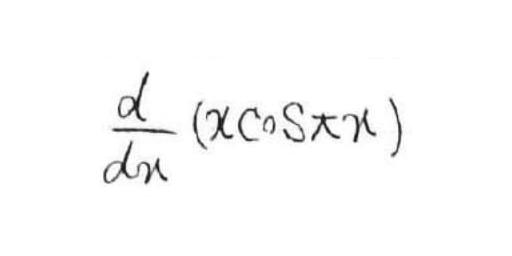 d/dx (x cos πx)